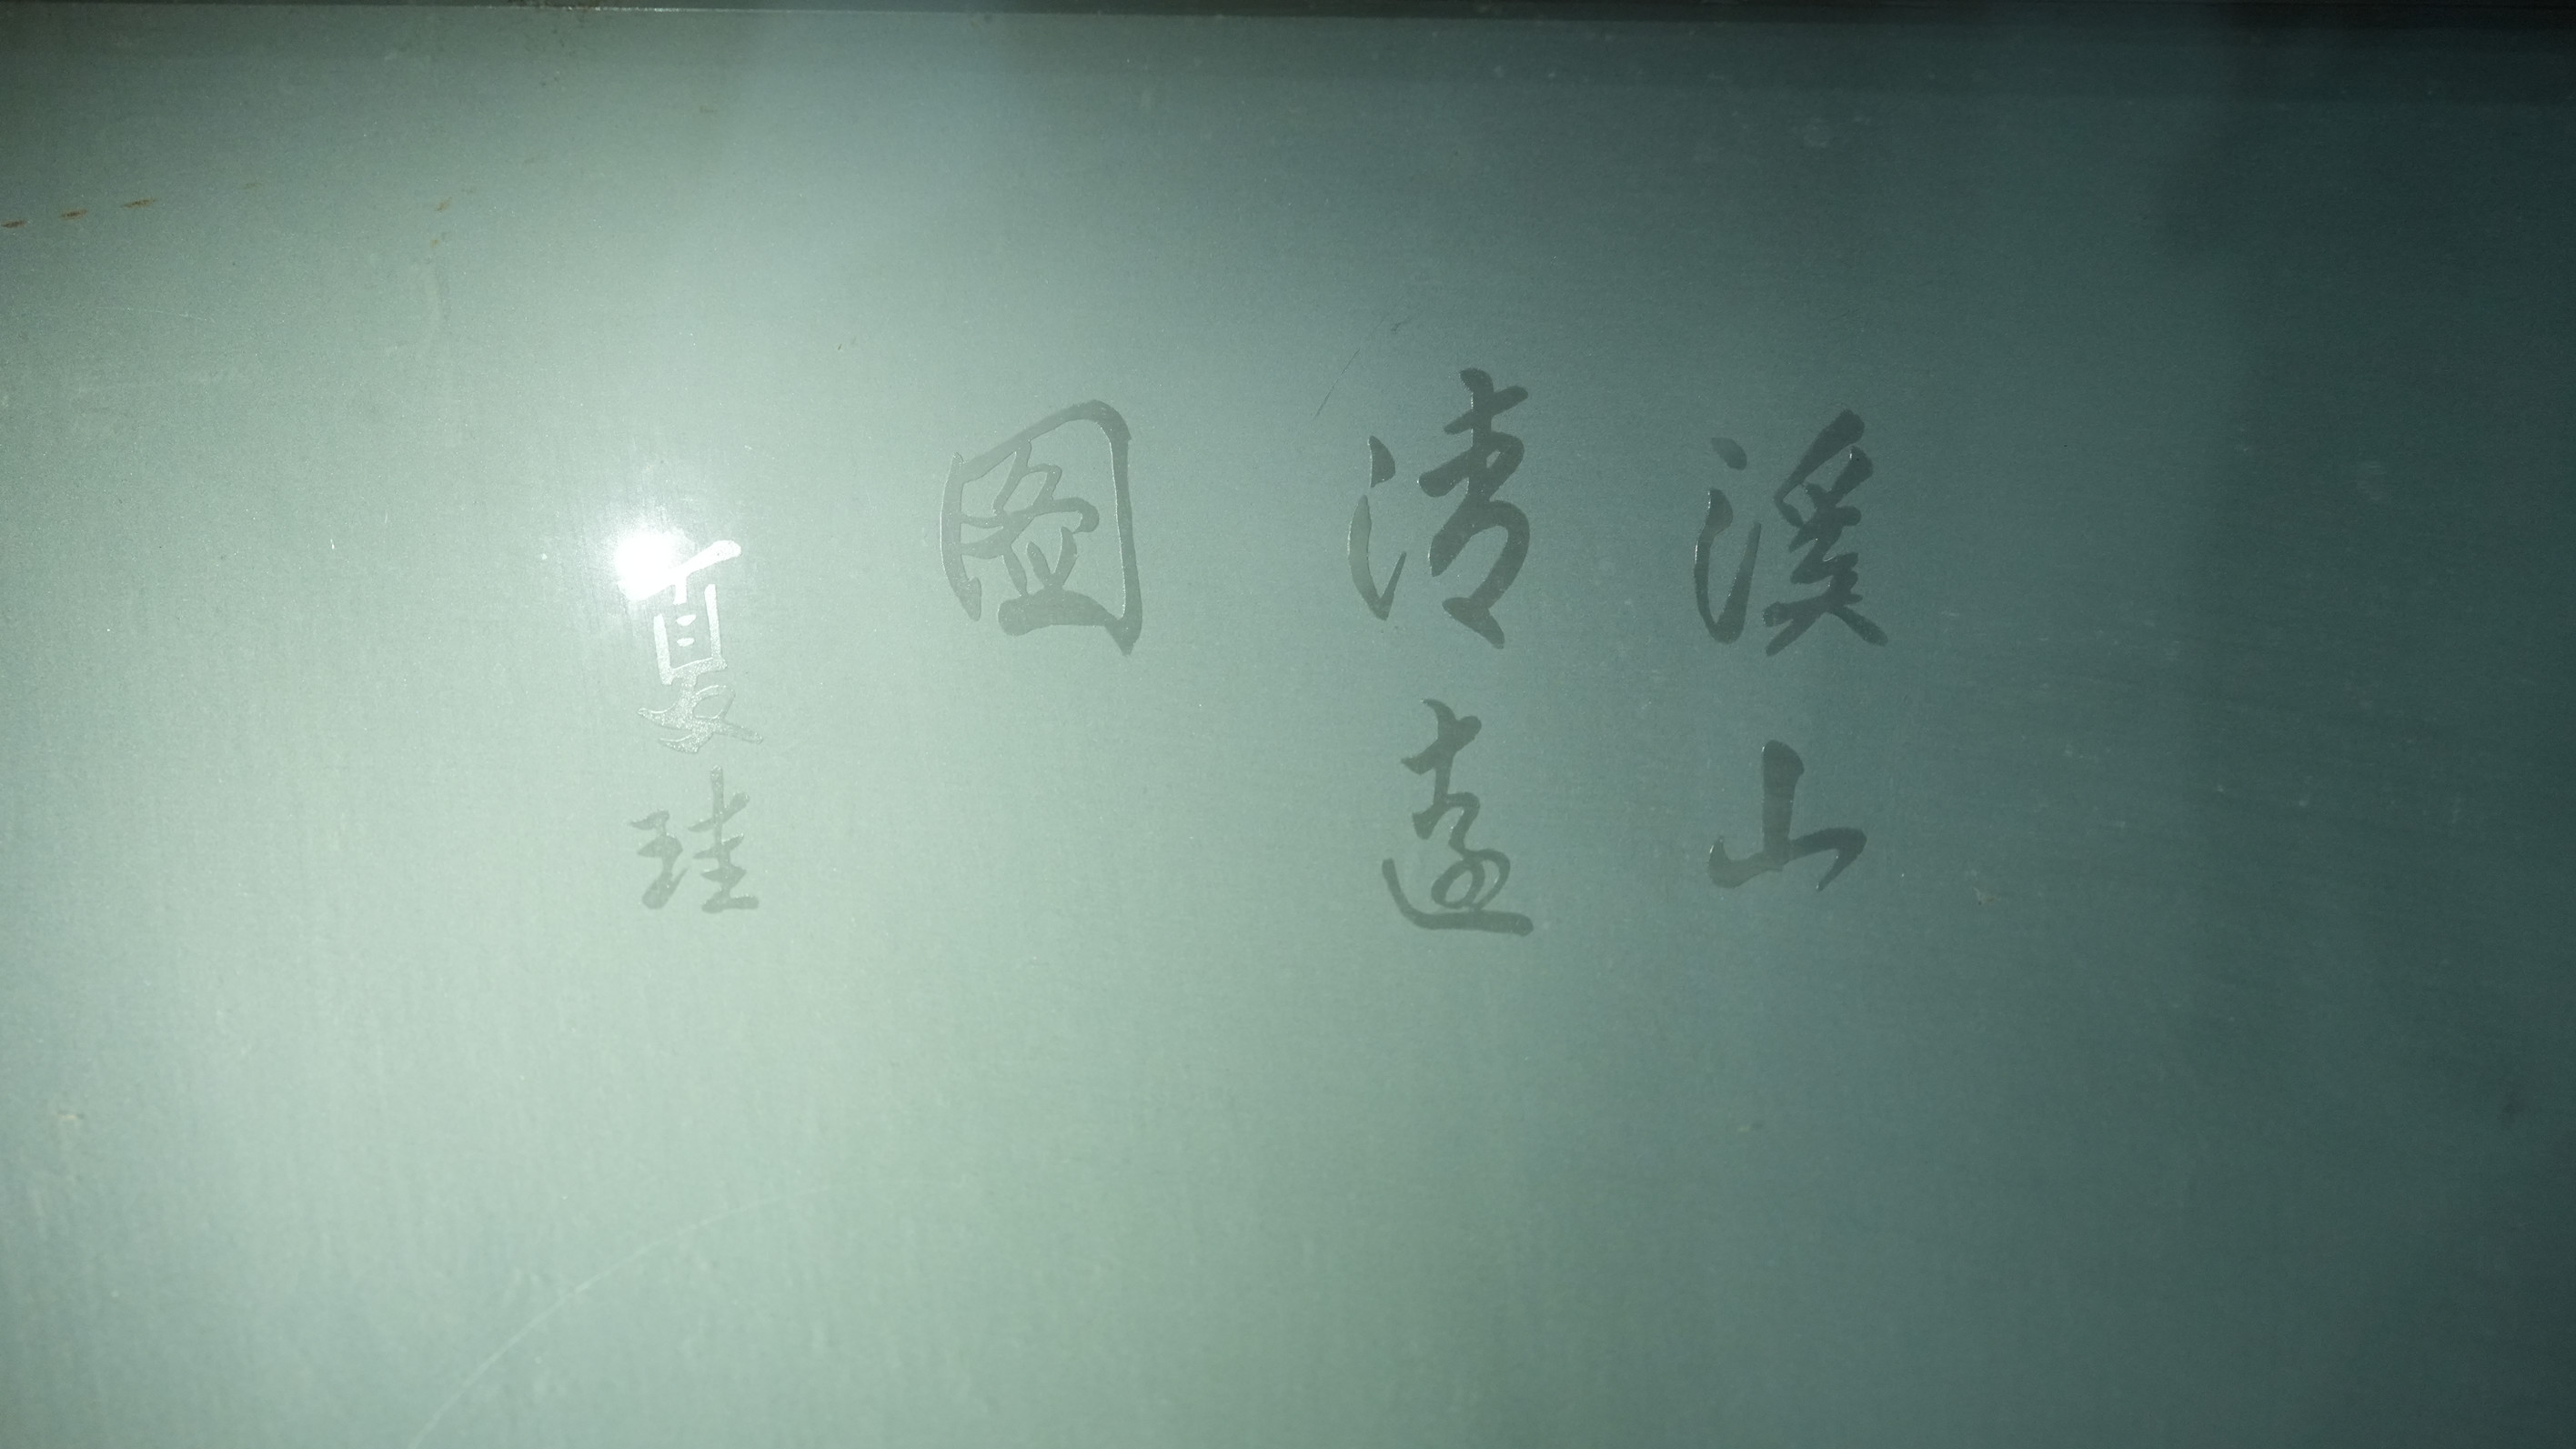 溪山
清遠
图
夏珪